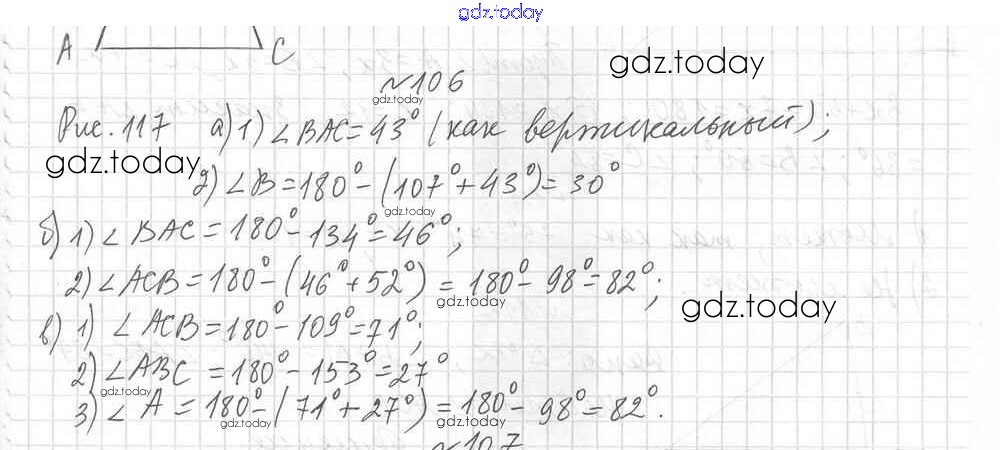 gdz.today
A C
gdz.today
№106
gdz.today
Рис. 117 а) 1) ∠BAC = 43° (как вертикальный);
gdz.today
2) ∠B = 180° - (107° + 43°) = 30°
gdz.today
б) 1) ∠BAC = 180° - 134° = 46°;
2) ∠ACB = 180° - (46° + 52°) = 180° - 98° = 82°;
gdz.today
gdz.today
в) 1) ∠ACB = 180° - 109° = 71°;
2) ∠ABC = 180° - 153° = 27°
gdz.today
3) ∠A = 180° - (71° + 27°) = 180° - 98° = 82°.
gdz.today
gdz.today
№107